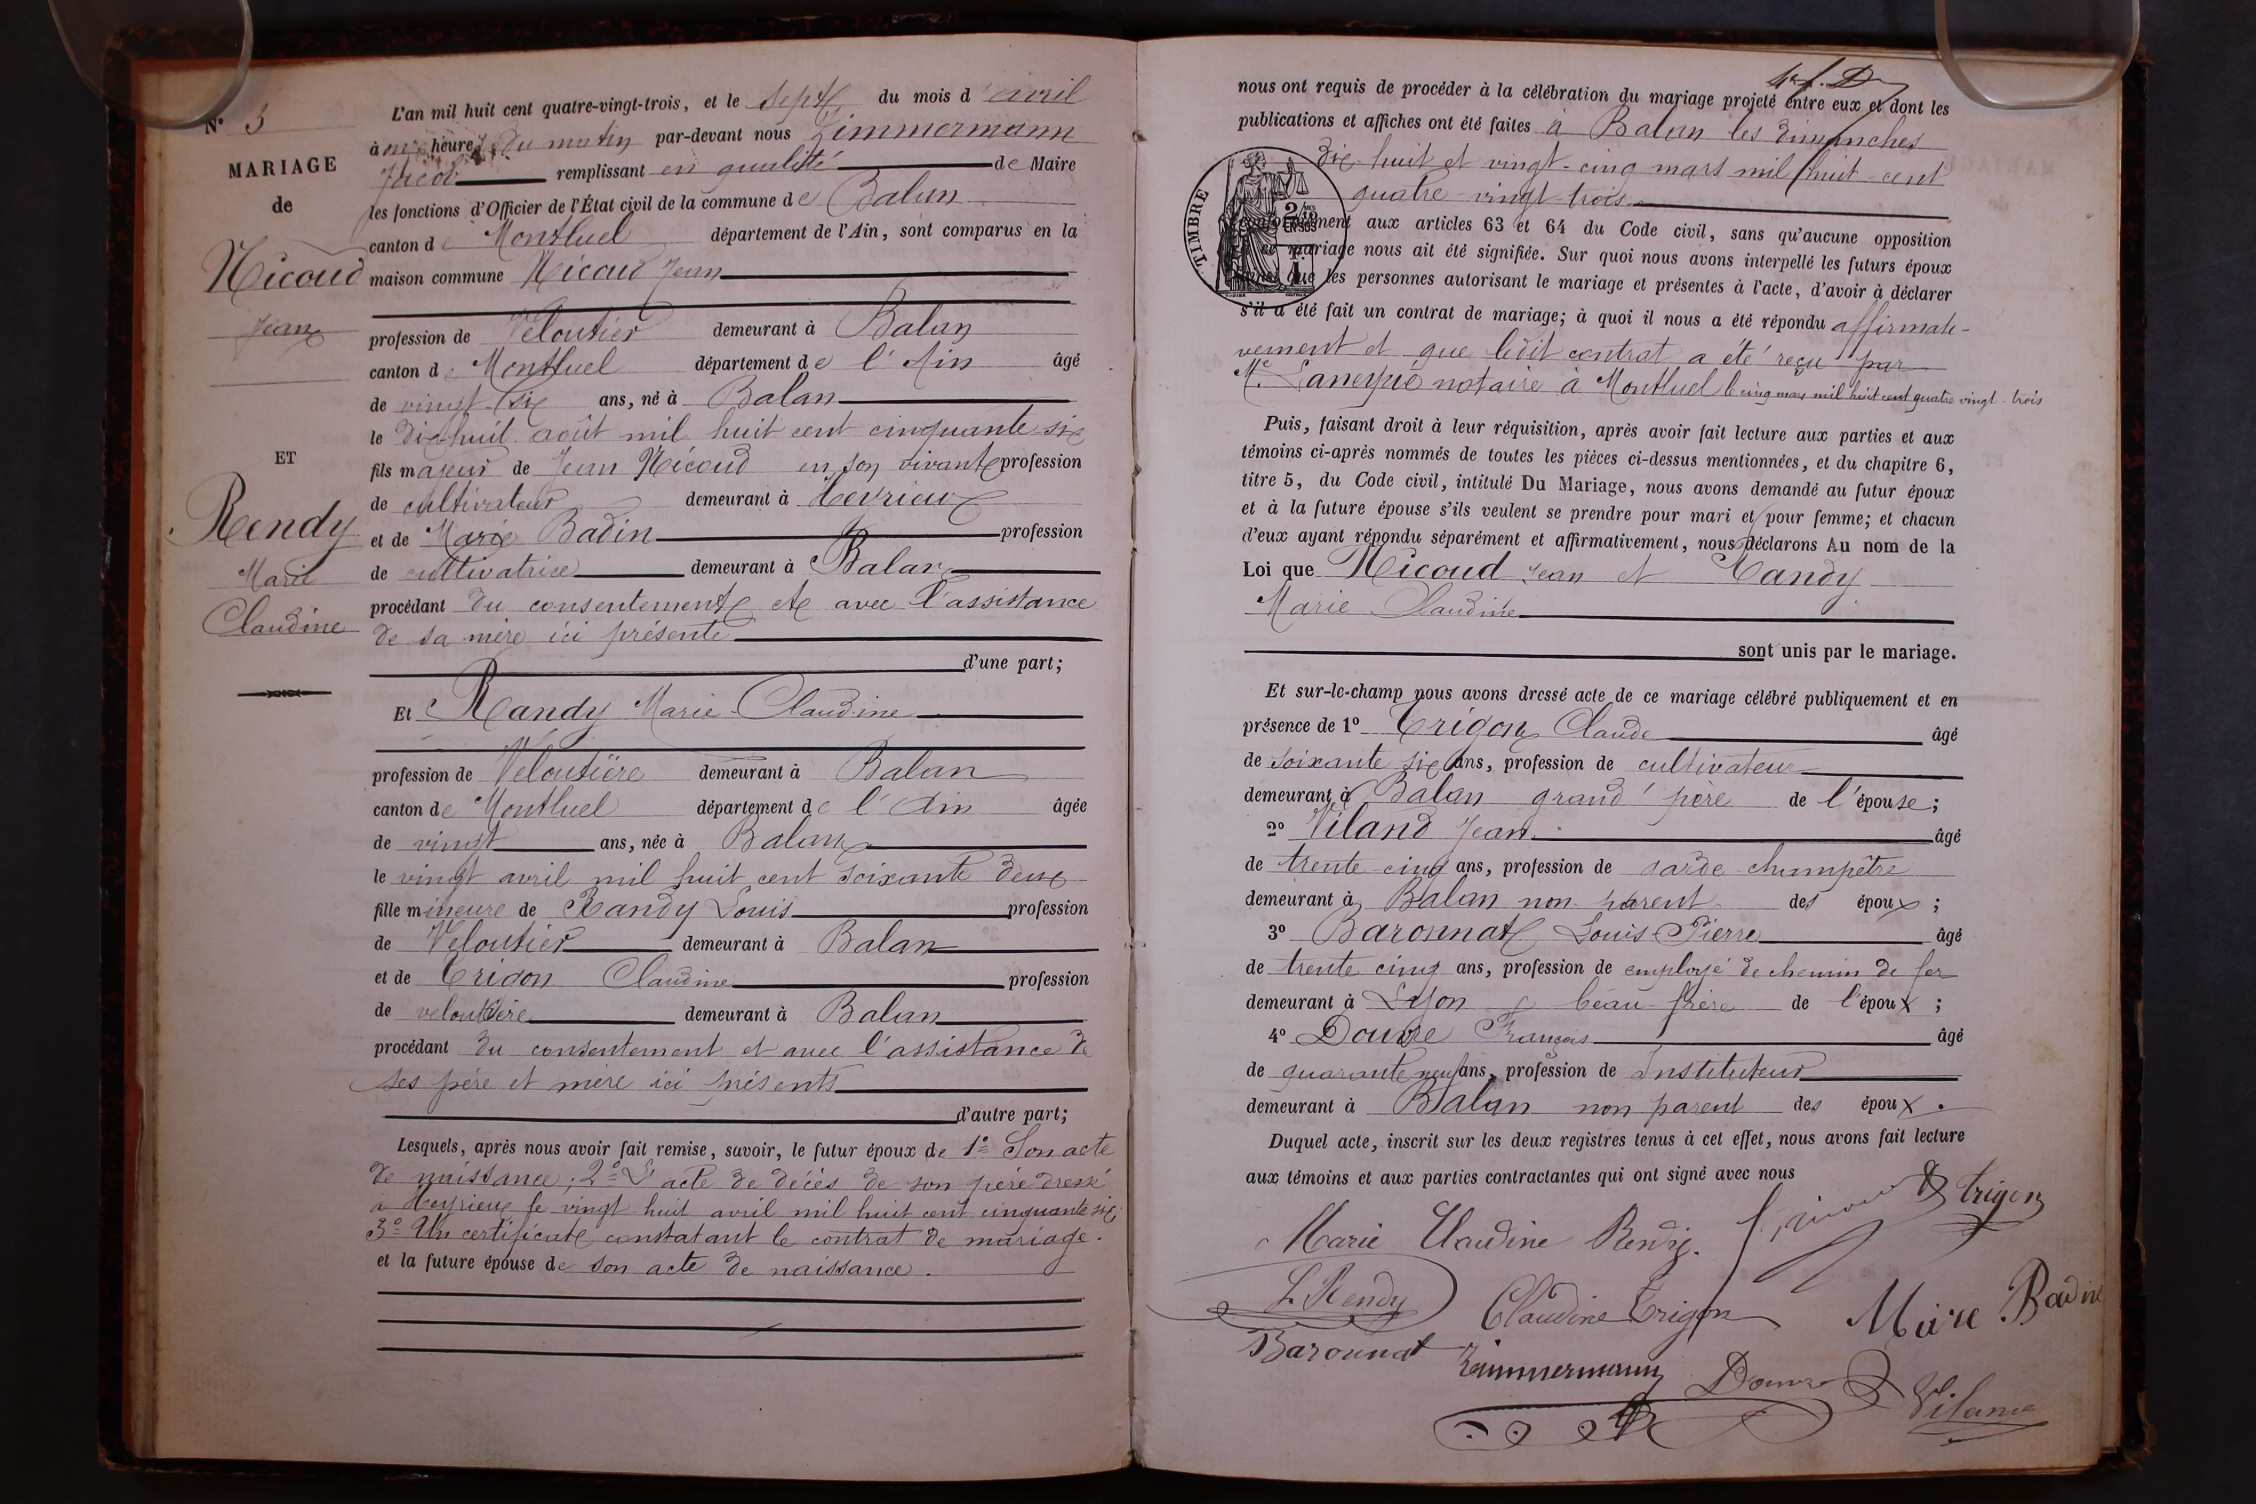 N° 3
MARIAGE
de
Nicoud
Jean
ET
Rendy
Marie
Claudine
L'an mil huit cent quatre-vingt-trois, et le sept du mois d'avril
à onze heures du matin par-devant nous Zimmermann
Jacob remplissant en qualité de Maire
les fonctions d'Officier de l'État civil de la commune de Balan
canton de Montluel département de l'Ain, sont comparus en la
maison commune Nicoud Jean
profession de Veloutier demeurant à Balan
canton de Montluel département de l'Ain âgé
de vingt-six ans, né à Balan
le dix-huit août mil huit cent cinquante six
fils majeur de Jean Nicoud en son vivant profession
de cultivateur demeurant à
et de Marie Badin profession
de cultivatrice demeurant à Balan
procédant du consentement et avec l'assistance
de sa mère ici présente
d'une part;
Et Randy Marie Claudine
profession de Veloutière demeurant à Balan
canton de Montluel département de l'Ain âgée
de vingt ans, née à Balan
le vingt avril mil huit cent soixante deux
fille mineure de Randy Louis profession
de Veloutier demeurant à Balan
et de Trigon Claudine profession
de veloutière demeurant à Balan
procédant du consentement et avec l'assistance de
ses père et mère ici présents
d'autre part;
Lesquels, après nous avoir fait remise, savoir, le futur époux de 1° Son acte
de naissance; 2° L'acte de décés de son père dressé
à le vingt huit avril mil huit cent cinquante six;
3° Un certificat constatant le contrat de mariage.
et la future épouse de son acte de naissance.
nous ont requis de procéder à la célébration du mariage projeté entre eux et dont les
publications et affiches ont été faites à Balan les dimanches
dix-huit et vingt-cinq mars mil huit cent
quatre-vingt-trois
conformément aux articles 63 et 64 du Code civil, sans qu'aucune opposition
mariage nous ait été signifiée. Sur quoi nous avons interpellé les futurs époux
que les personnes autorisant le mariage et présentes à l'acte, d'avoir à déclarer
s'il a été fait un contrat de mariage; à quoi il nous a été répondu affirmati-
vement et que ledit contrat a été reçu par
Me. Laneyrie notaire à Montluel le cinq mars mil huit cent quatre vingt-trois
TIMBRE
Puis, faisant droit à leur réquisition, après avoir fait lecture aux parties et aux
témoins ci-après nommés de toutes les pièces ci-dessus mentionnées, et du chapitre 6,
titre 5, du Code civil, intitulé Du Mariage, nous avons demandé au futur époux
et à la future épouse s'ils veulent se prendre pour mari et pour femme; et chacun
d'eux ayant répondu séparément et affirmativement, nous déclarons Au nom de la
Loi que Nicoud Jean et Randy
Marie Claudine
sont unis par le mariage.
Et sur-le-champ nous avons dressé acte de ce mariage célébré publiquement et en
présence de 1° Trigon Claude âgé
de soixante six ans, profession de cultivateur
demeurant à Balan grand' père de l'épouse;
2° Viland Jean âgé
de trente-cinq ans, profession de garde-champêtre
demeurant à Balan non parent des époux;
3° Baronnat Louis-Pierre âgé
de trente cinq ans, profession de employé de chemin de fer
demeurant à Lyon beau-frère de l'époux;
4° Douvre François âgé
de quarante neuf ans, profession de Instituteur
demeurant à Balan non parent des époux.
Duquel acte, inscrit sur les deux registres tenus à cet effet, nous avons fait lecture
aux témoins et aux parties contractantes qui ont signé avec nous
Trigon
Marie Claudine Rendy.
L. Rendy Claudine Trigon Marie Badin
Baronnat Zimmermann Douvre